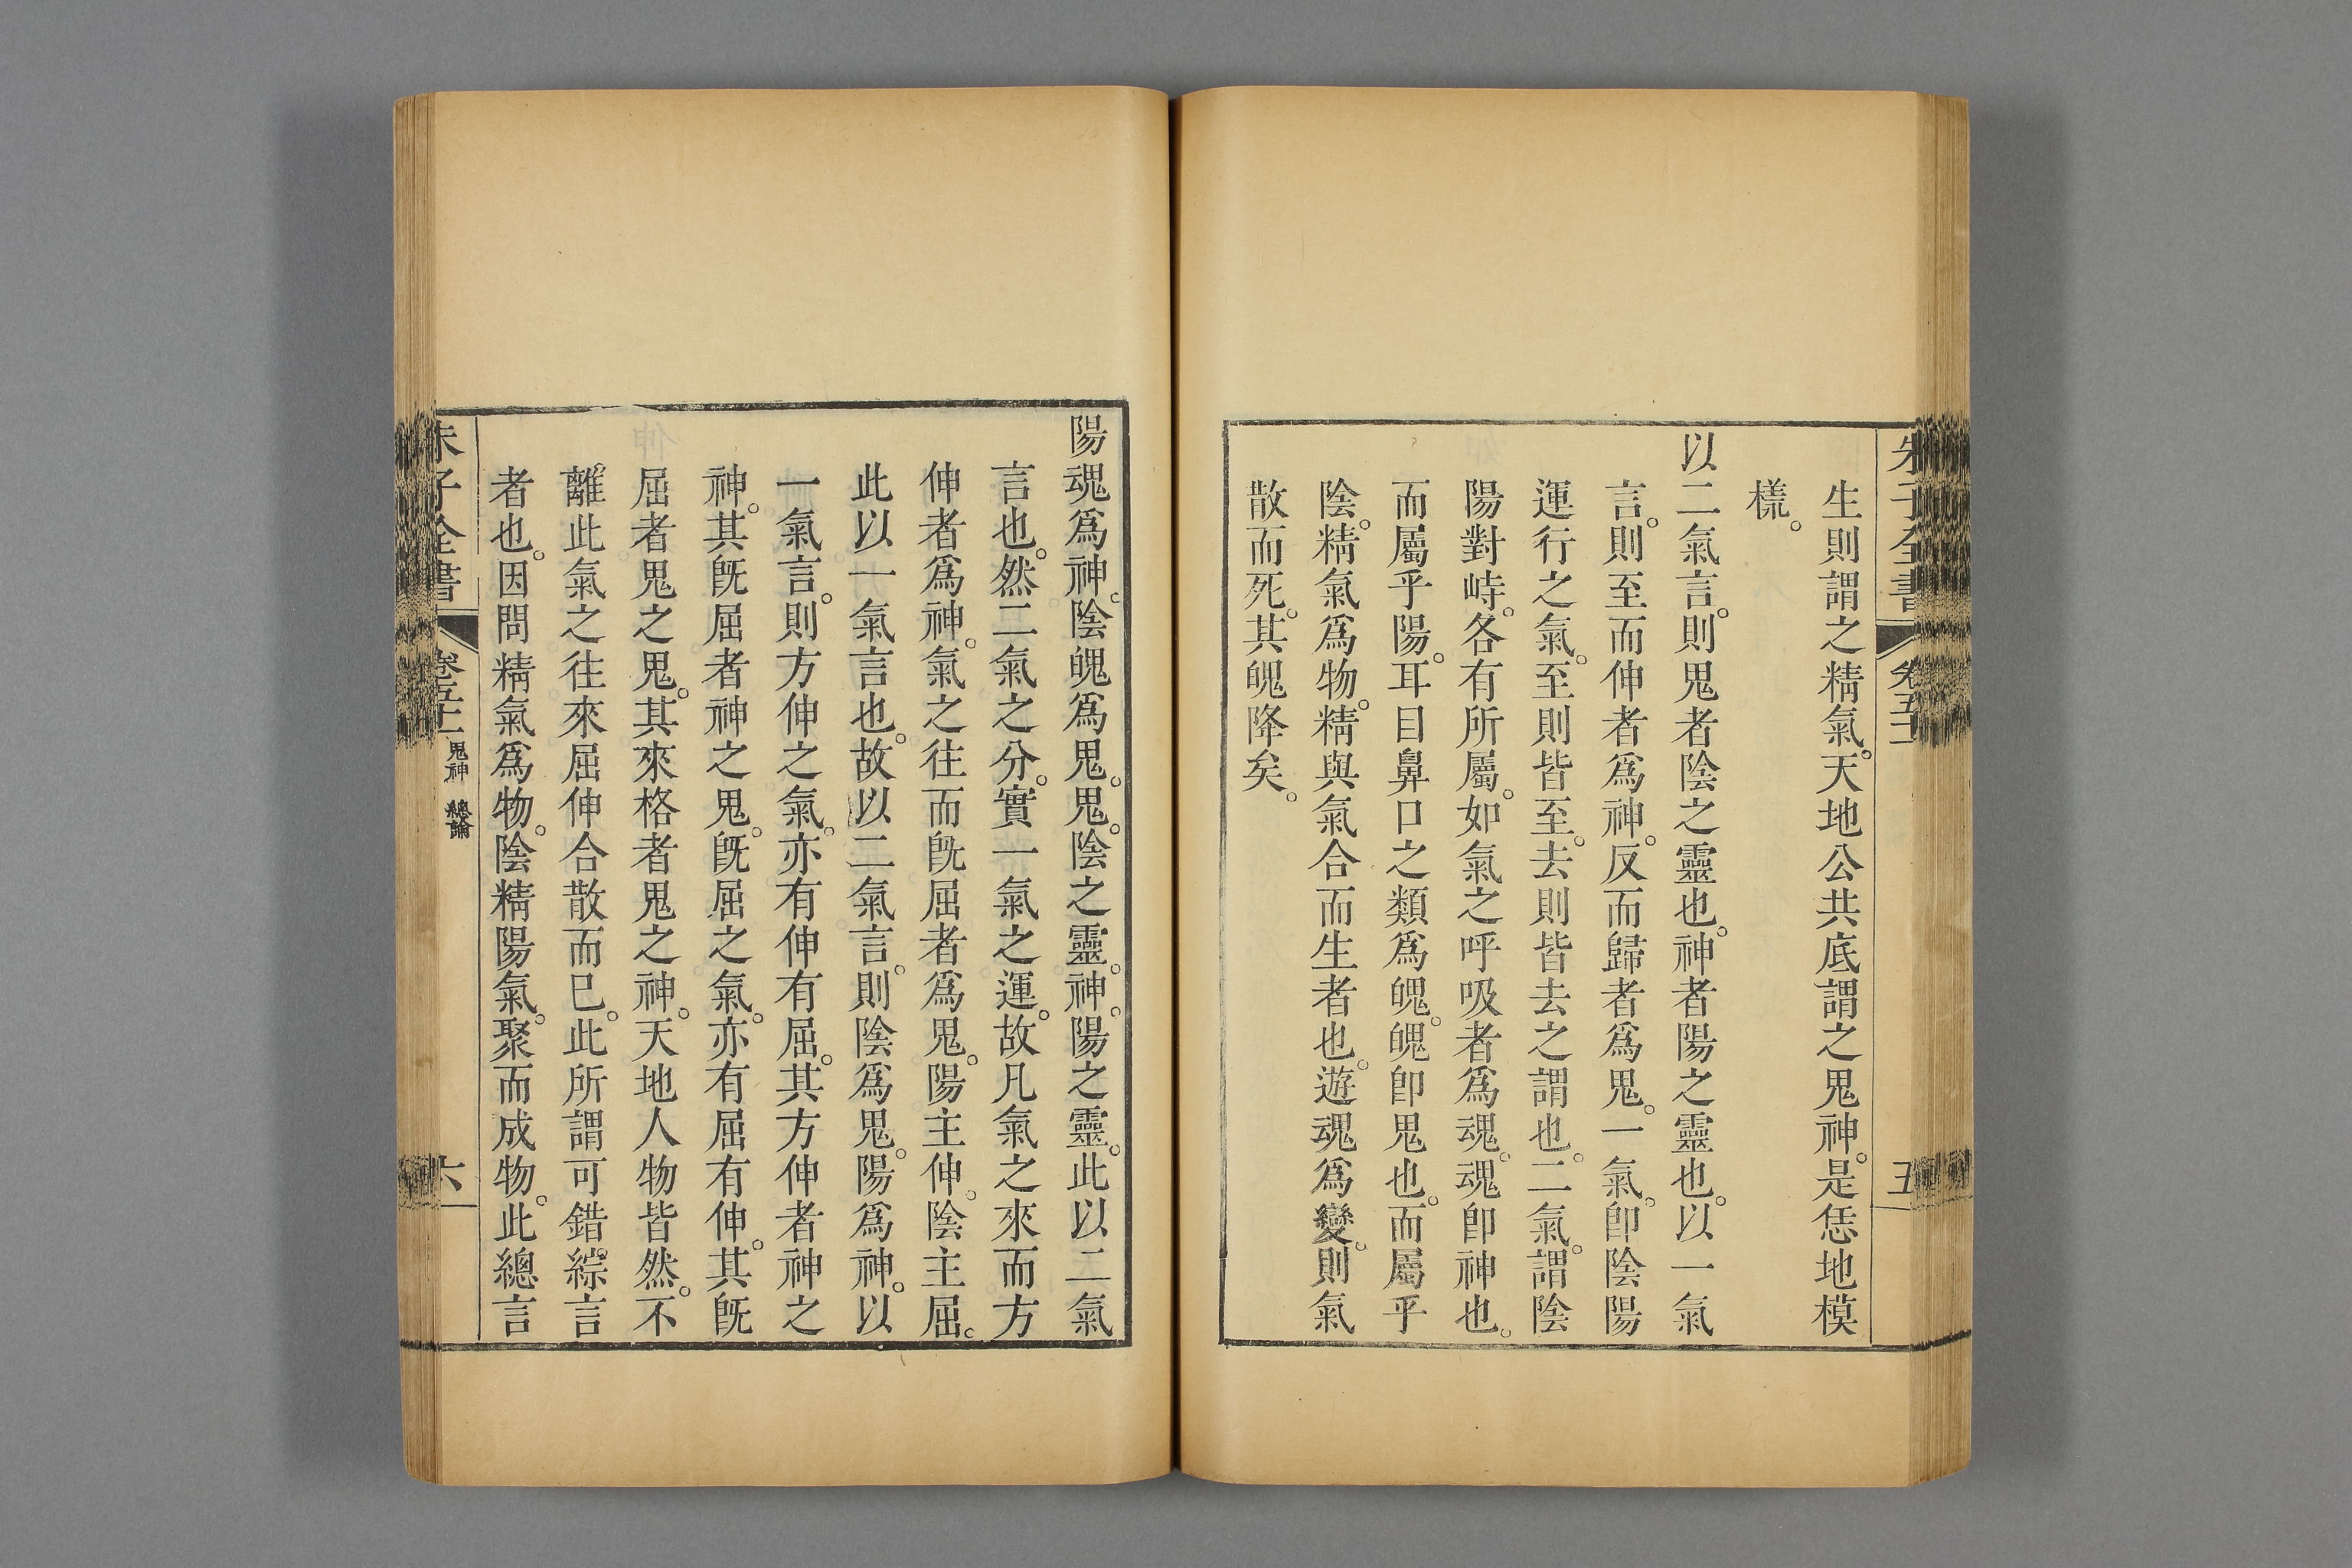 朱子全書
卷五十一
五
生則謂之精氣。天地公共底謂之鬼神。是恁地模
㨾。
以二氣言。則鬼者陰之靈也。神者陽之靈也。以一氣
言。則至而伸者爲神。反而歸者爲鬼。一氣。卽陰陽
運行之氣。至則皆至。去則皆去之謂也。二氣。謂陰
陽對峙。各有所屬。如氣之呼吸者爲魂。魂卽神也。
而屬乎陽。耳目鼻口之類爲魄。魄卽鬼也。而屬乎
陰。精氣爲物。精與氣合而生者也。遊魂爲變。則氣
散而死。其魄降矣。
陽魂爲神。陰魄爲鬼。鬼。陰之靈。神。陽之靈。此以二氣
言也。然二氣之分。實一氣之運。故凡氣之來而方
伸者爲神。氣之往而旣屈者爲鬼。陽主伸。陰主屈。
此以一氣言也。故以二氣言。則陰爲鬼。陽爲神。以
一氣言。則方伸之氣。亦有伸有屈。其方伸者神之
神。其旣屈者神之鬼。旣屈之氣。亦有屈有伸。其旣
屈者鬼之鬼。其來格者鬼之神。天地人物皆然。不
離此氣之往來屈伸合散而已。此所謂可錯綜言
者也。因問精氣爲物。陰精陽氣。聚而成物。此總言
朱子全書
卷五十一
鬼神
總論
六